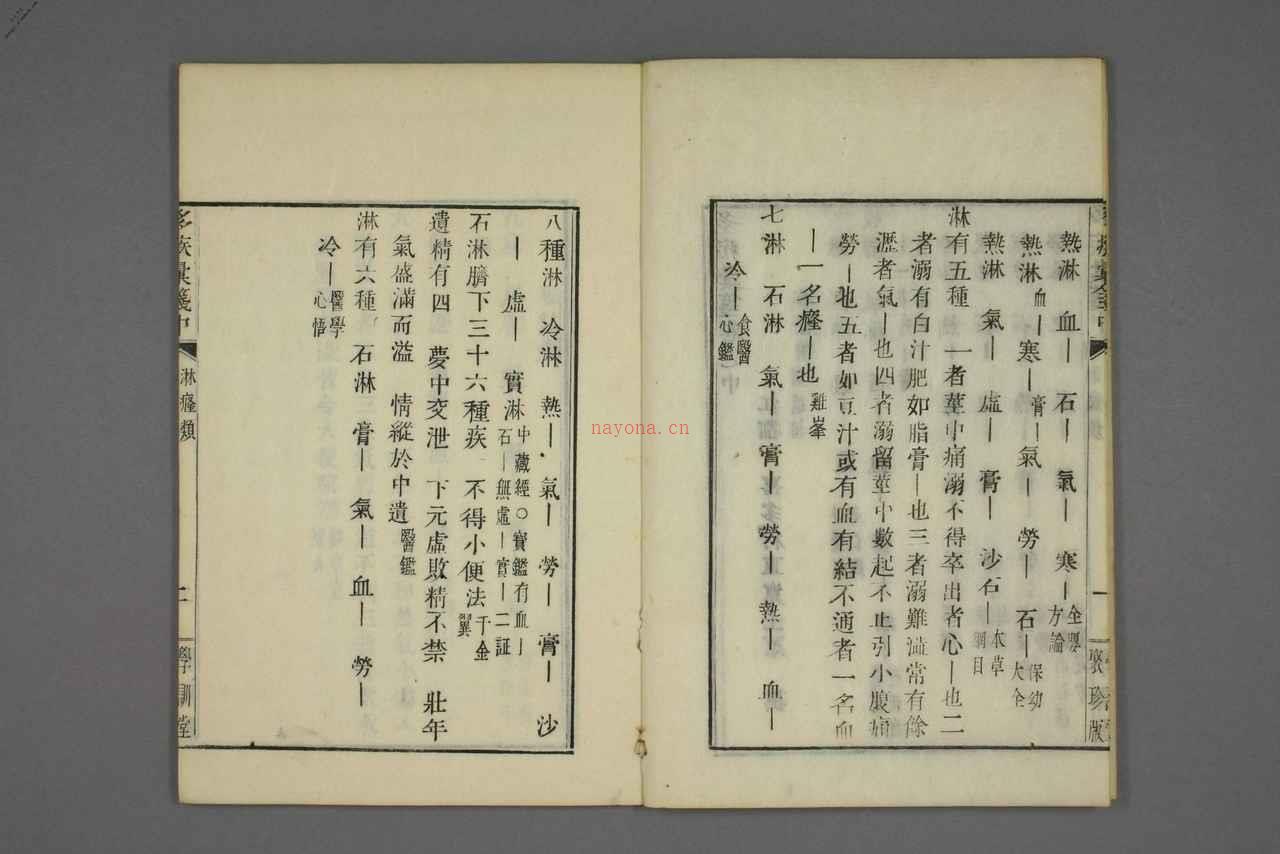 熱淋 血｜ 石｜ 氣｜ 寒｜ 全嬰方論
熱淋 血｜ 寒｜ 膏｜ 氣｜ 勞｜ 石｜ 保幼大全
熱淋 氣｜ 虛｜ 膏｜ 沙石｜ 本草綱目
淋有五種 一者莖中痛溺不得卒出者心｜也二
者溺有白汁肥如脂膏｜也三者溺難澁常有餘
瀝者氣｜也四者溺留莖中數起不止引小腹痛
勞｜也五者如豆汁或有血有結不通者一名血
｜一名癃｜也 雞峯
七淋 石淋 氣｜ 膏｜ 勞｜ 熱｜ 血｜
冷｜ 食醫心鑑
聚珍版
八種淋 冷淋 熱｜ 氣｜ 勞｜ 膏｜ 沙
｜ 虛｜ 實淋 中藏經○寶鑑有血｜石｜無虛｜實｜二証
石淋臍下三十六種疾 不得小便法 千金翼
遺精有四 夢中交泄 下元虛敗精不禁 壯年
氣盛滿而溢 情縱於中遺 醫鑑
淋有六種 石淋 膏｜ 氣｜ 血｜ 勞｜
冷｜ 醫學心悟
淋癃類
二
學訓堂
nayona.cn